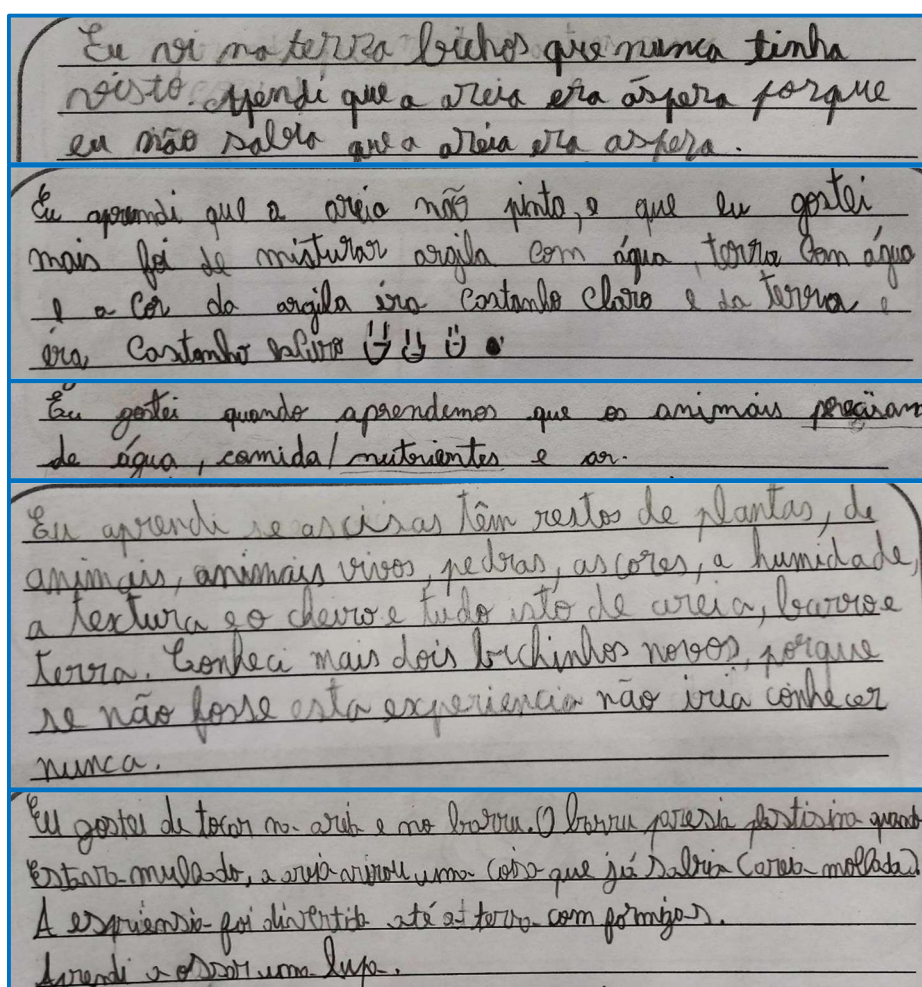 Eu vi na terra bichos que nunca tinha
visto. Aprendi que a areia era áspera porque
eu não sabia que a areia era aspera.
Eu aprendi que a areia não pinta, o que eu gostei
mais foi de misturar argila com água, terra com água
e a cor da argila éra castanho claro e da terra é
éra castanho escuro
Eu gostei quando aprendemos que os animais preçisam
de água, comida/nutrientes e ar.
Eu aprendi se as cisas têm restos de plantas, de
animais, animais vivos, pedras, as cores, a humidade,
a textura e o cheiro e tudo isto de areia, barro e
terra. Conheci mais dois bichinhos novos, porque
se não fosse esta experiencia não iria conhecer
nunca.
Eu gostei de tocar na areia e no barru. O barru paresia plastisina quando
estava mulhado, a areia virou uma coisa que já sabia (areia molhada).
A espriensia foi divertida até a terra com formigas.
Aprendi a ossar uma lupa.